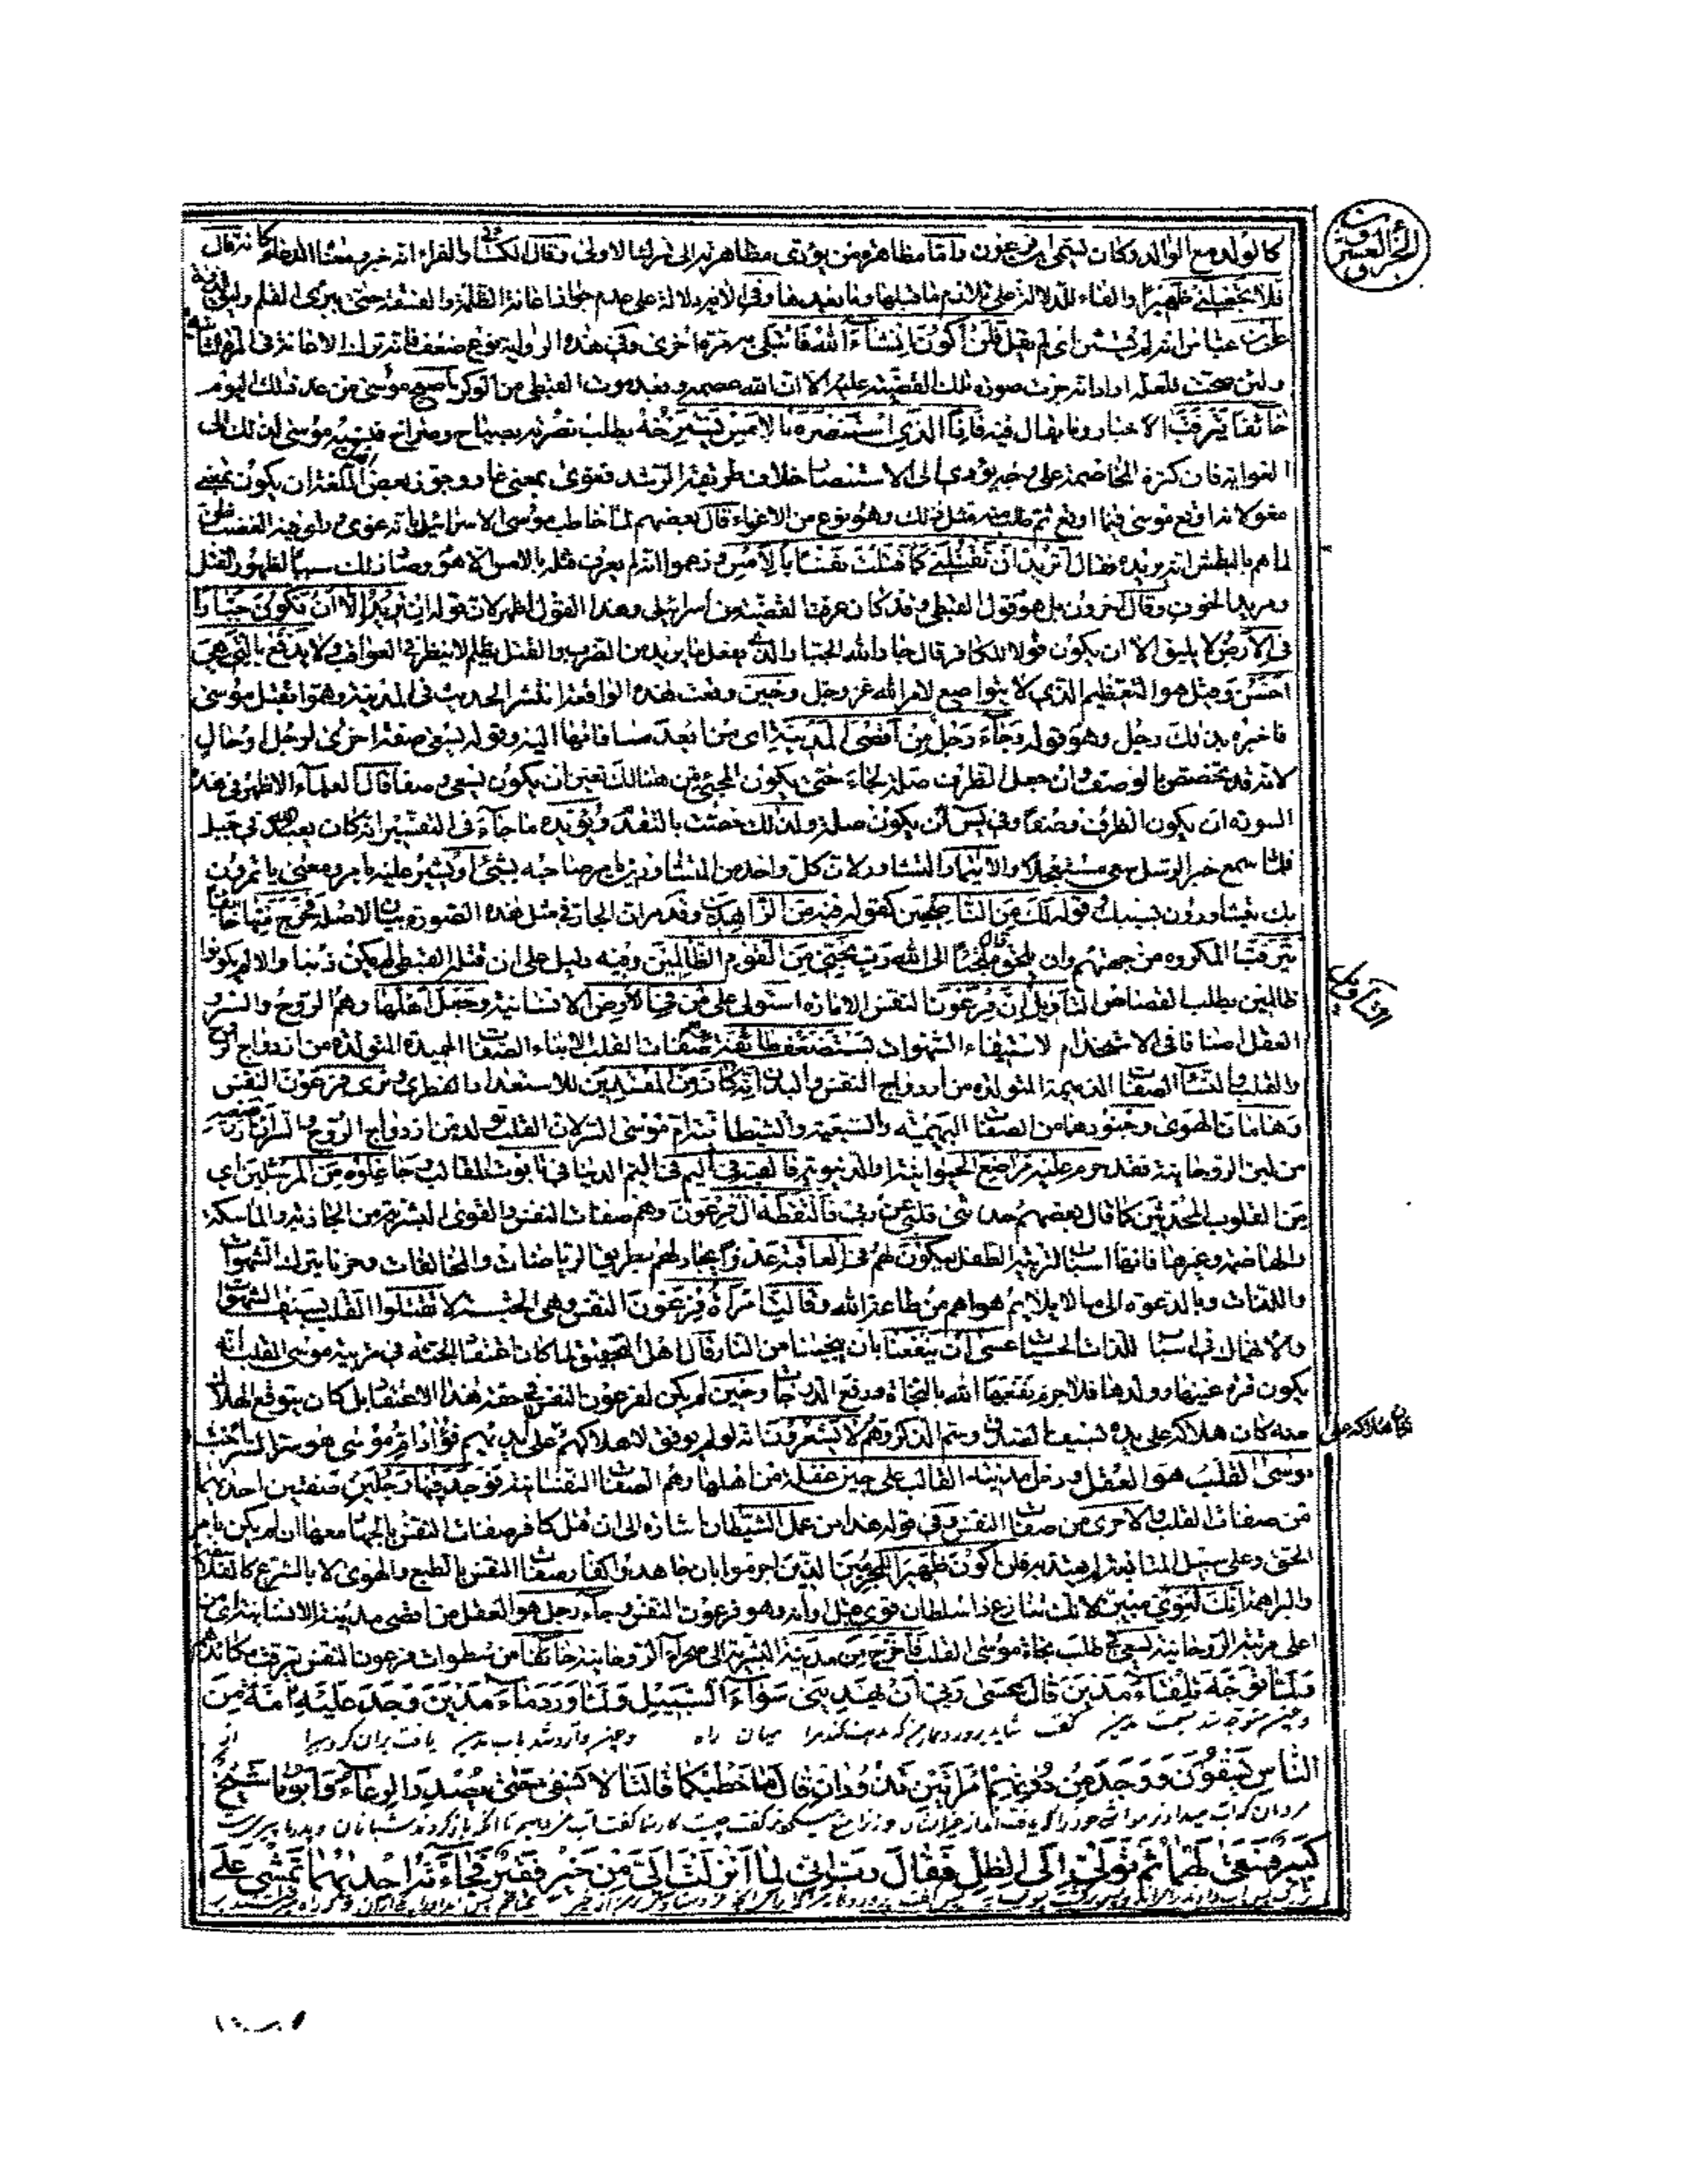 الجزء العشرون
كالولد مع الوالد وكان يسمى ابن فرعون واما مظاهرة من يؤدى مظاهرته الى ترك الاولى وقال الكسائى والفراء انه خبر ومعناه الدعاء كانه قال
فلا تجعلنى ظهيرا والفاء للدلالة على تلازم ما قبلها وما بعدها وفى الآية دلالة على عدم جواز اعانة الظلمة والفسقة حتى برى القلم
عن ابن عباس انه لم يستثن اى لم يقل فلن اكون ان شاء الله فابتلى به مرة اخرى وفى هذه الرواية نوع ضعف فانه ترك الاعانة
ولئن صحت فلعله اراد انه جرت صورة تلك القضية عليه الا ان الله عصمه وبعد موت القبطى من الوكز اصبح موسى من غد ذلك اليوم
خائفا يترقب الاخبار وما يقال فيه فاذا الذى استنصره بالامس يستصرخه يطلب نصرته بصياح وصراخ فنسبه موسى لذلك الى
الغواية فان كثرة المخاصمة على وجه يؤدى الى الاستنصار خلاف طريقة الرشد فغوى بمعنى غاو وجوز بعض اهل اللغة ان يكون بمعنى
مغو لانه اوقع موسى فيما اوقع ثم طلب منه مثل ذلك وهو نوع من الاغواء قال بعضهم لما خاطب موسى الاسرائيلى بانه غوى وراى فيه الغضب ظن
لما هم بالبطش انه يريده فقال اتريد ان تقتلنى كما قتلت نفسا بالامس وزعموا انه لم يعرف قتله بالامس الا هو وصار ذلك سببا لظهور القتل
ومزيد الخوف وقال آخرون بل هو قول القبطى وقد كان عرف القضية من اسرائيلى وهذا القول اظهر لان قوله ان تريد الا ان تكون جبارا
فى الارض لا يليق الا ان يكون قولا للكافر قال جار الله الجبار الذى يفعل ما يريد من الضرب والقتل بظلم لا ينظر فى العواقب ولا يدفع بالتى هى
احسن وقيل هو التعظيم الذى لا يتواضع لامر الله عز وجل وحين وقعت هذه الواقعة انتشر الحديث فى المدينة وهموا بقتل موسى
فاخبره بذلك رجل وهو قوله وجاء رجل من اقصى المدينة اى من ابعد مسافاتها اليه وقوله يسعى صفة اخرى لرجل او حال
لانه قد تخصص بالوصف وان جعل الظرف صلة لجاء حتى يكون المجىء من هنالك تعين ان يكون يسعى وصفا قال العلماء الاظهر فى هذه
السورة ان يكون الظرف وصفا وفى يس ان يكون صلة ولذلك خصت بالتقدم ويؤيده ما جاء فى التفسير انه كان يعبد الله فى جبل
فلما سمع خبر الرسل سعى مستعجلا والائتمار التشاور لان كل واحد من المتشاورين يامر صاحبه بشىء او يشير عليه بامر ومعنى ياتمرون
بك يتشاورون بسببك قوله لك من الناصحين كقوله فيه من الزاهدين وقد مر ان الجار فى مثل هذه الصورة بيان لا صلة فخرج منها خائفا
يترقب المكروه من جهتهم وان يلحق قال ملتجئا الى الله رب نجنى من القوم الظالمين وفيه دليل على ان قتله القبطى لم يكن ذنبا والا لم يكونوا
ظالمين بطلب القصاص التاويل ان فرعون النفس الامارة استولى على من فى الارض الانسانية وجعل اهلها وهم الروح والسر
التأويل
العقل اصنافا فى الاستخدام لاستيفاء الشهوات يستضعف طائفة منهم صفات القلب الابناء الصفات الحميدة المتولدة من ازدواج الروح
والقلب والنساء الصفات الذميمة المتولدة من ازدواج النفس والبدن انه كان من المفسدين للاستعداد الفطرى ونرى فرعون النفس
وهامان الهوى وجنودهما من الصفات البهيمية والسبعية والشيطانية ام موسى السر لان القلب تولد من ازدواج الروح السر ان ارضعيه
من لبن الروحانية فقد حرم عليه مراضع الحيوانية والدنيوية فالقيه فى اليم فى اليم الدنيا فى تابوت القالب وجاعلوه من المرسلين اى
من القلوب المحدثين كما قال بعضهم حدثنى قلبى عن ربى فالتقطه آل فرعون وهم صفات النفس والقوى البشرية من الجاذبة والماسكة
والهاضمة وغيرها فانها اسباب لتربية الطفل ليكون لهم فى العاقبة عدوا يجادلهم بطريق الرياضات والمخالفات وحزنا بترك الشهوات
واللذات وبالدعوة الى ما لا يلايم هواهم من طاعة الله وقالت امرأة فرعون النفس وهى الجثة لا تقتلوا القلب بسيف الشهوات
والانهماك فى اسباب اللذات الحسيات عسى ان ينفعنا بان ينجينا من النار قال اهل التحقيق لما كان اعتقاد الجثة فى تربية موسى القلب انه
يكون قرة عينها وولدها فلا جرم نفعها الله بالنجاة ورفع الدرجات وحين لم يكن لفرعون النفس فى حقه هذا الاعتقاد بل كان يتوقع الهلاك
منه كان هلاكه على يده بسيف الصدق وسم الذكر وهم لا يشعرون انه لو لم يوفق لاهلاكهم على يديهم فؤاد ام موسى هو سر السر
موسى القلب هو العقل ودخل مدينة القالب على حين غفلة من اهلها وهم الصفات النفسانية فوجد فيها رجلين صفتين احديهما
من صفات القلب والاخرى من صفات النفس وفى قوله هذا من عمل الشيطان اشارة الى ان قتل كافر صفات النفس بالجهاد معها ان لم يكن بامر
الحق وعلى سبيل المتابعة لم يعتد به فلن اكون ظهيرا للمجرمين الذين اجرموا بان جاهدوا كفار صفات النفس بالطبع والهوى لا بالشرع كالفلاسفة
والبراهمة انك لغوى مبين لانك تنازع ذا سلطان قوى قبل اوانه وهو فرعون النفس وجاء رجل هو العقل من اقصى مدينة الانسانية اى من
اعلى مرتبة الروحانية يسعى فى طلب نجاة موسى القلب فاخرج من مدينة البشرية الى صحراء الروحانية خائفا من سطوات فرعون النفس يترقب مكائدهم
وَلَمَّا تَوَجَّهَ تِلْقَاءَ مَدْيَنَ قَالَ عَسَى رَبِّي أَنْ يَهْدِيَنِي سَوَاءَ السَّبِيلِ وَلَمَّا وَرَدَ مَاءَ مَدْيَنَ وَجَدَ عَلَيْهِ أُمَّةً مِنَ
وچون متوجه شد بسمت مدين گفت شايد پروردگارم كه هدايت كند مرا ميان راه وچون وارد شد بآب مدين يافت بر آن گروهى را از
النَّاسِ يَسْقُونَ وَوَجَدَ مِنْ دُونِهِمُ امْرَأَتَيْنِ تَذُودَانِ قَالَ مَا خَطْبُكُمَا قَالَتَا لَا نَسْقِي حَتَّى يُصْدِرَ الرِّعَاءُ وَأَبُونَا شَيْخٌ
مردمان كه آب ميدادند مواشى خود را
كَبِيرٌ فَسَقَى لَهُمَا ثُمَّ تَوَلَّى إِلَى الظِّلِّ فَقَالَ رَبِّ إِنِّي لِمَا أَنْزَلْتَ إِلَيَّ مِنْ خَيْرٍ فَقِيرٌ فَجَاءَتْهُ إِحْدَاهُمَا تَمْشِي عَلَى